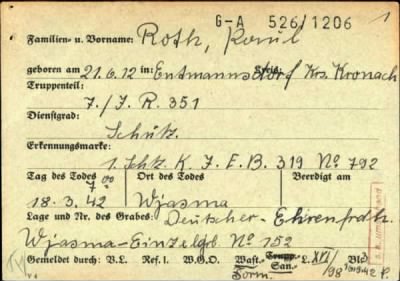 G-A 526/1206 1
Familien- u. Vorname: Roth, Paul
geboren am 21.6.12 in: Entmannsdorf Kreis: Krs. Kronach
Truppenteil:
7./J.R. 351
Dienstgrad:
Schütz.
Erkennungsmarke:
1. Schtz. K. J.E.B. 319 No 792
Tag des Todes Ort des Todes Beerdigt am
7 00
18.3.42 Wjasma
Lage und Nr. des Grabes: Deutscher-Ehrenfrdh.
Wjasma-Einzelgrb. No 152
Gemeldet durch: V.L. Ref. I. W.G.O. Wast.- Trupp.- San.- L. XVI/98 Bld
Form. 1942